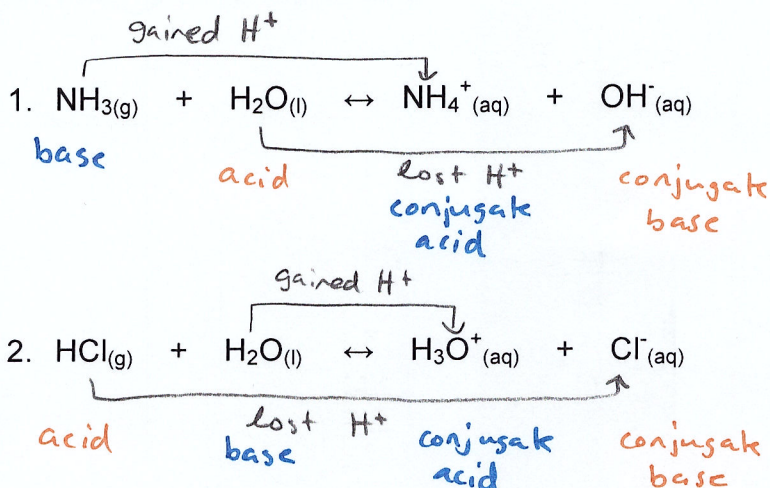 gained H⁺
1. NH₃(g) + H₂O(l) ↔ NH₄⁺(aq) + OH⁻(aq)
base acid lost H⁺ conjugate
conjugate base
acid
gained H⁺
2. HCl(g) + H₂O(l) ↔ H₃O⁺(aq) + Cl⁻(aq)
lost H⁺
acid base conjugate conjugate
acid base